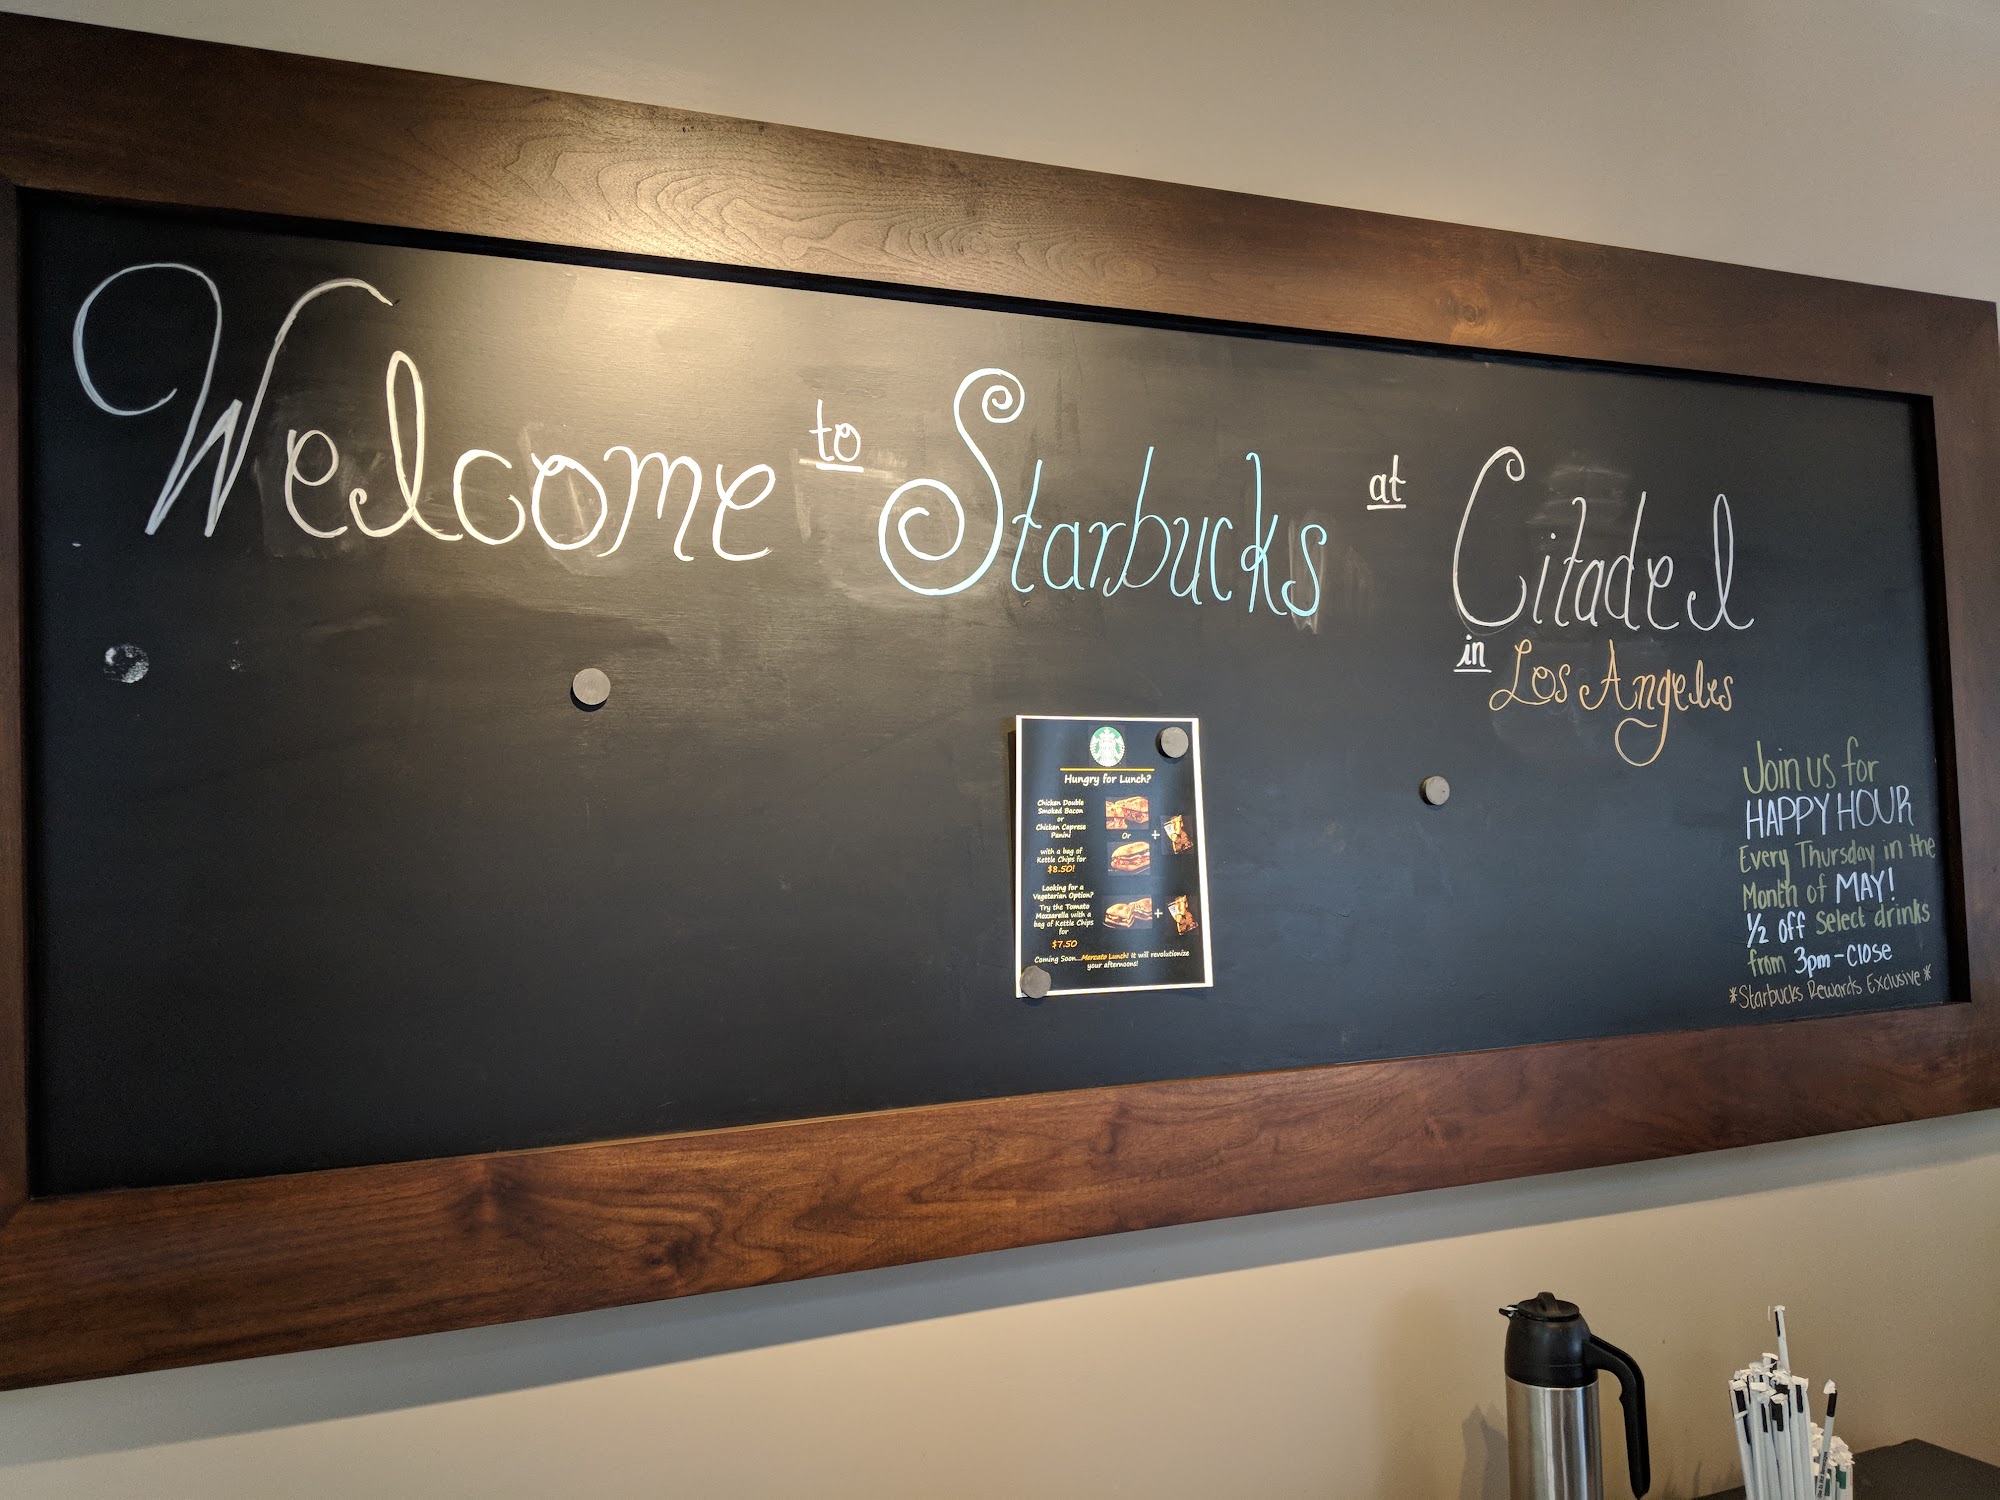 Welcome to Starbucks at Citadel
in Los Angeles
Hungry for Lunch?
Chicken Double
Smoked Bacon
or
Chicken Caprese
Panini
with a bag of
Kettle Chips for
$8.50!
Or
+
Looking for a
Vegetarian Option?
Try the Tomato
Mozzarella with a
bag of Kettle Chips
for
$7.50
+
Coming Soon...Mercato Lunch! It will revolutionize
your afternoons!
Join us for
HAPPY HOUR
Every Thursday in the
Month of MAY!
1/2 off Select drinks
from 3pm-Close
*Starbucks Rewards Exclusive*